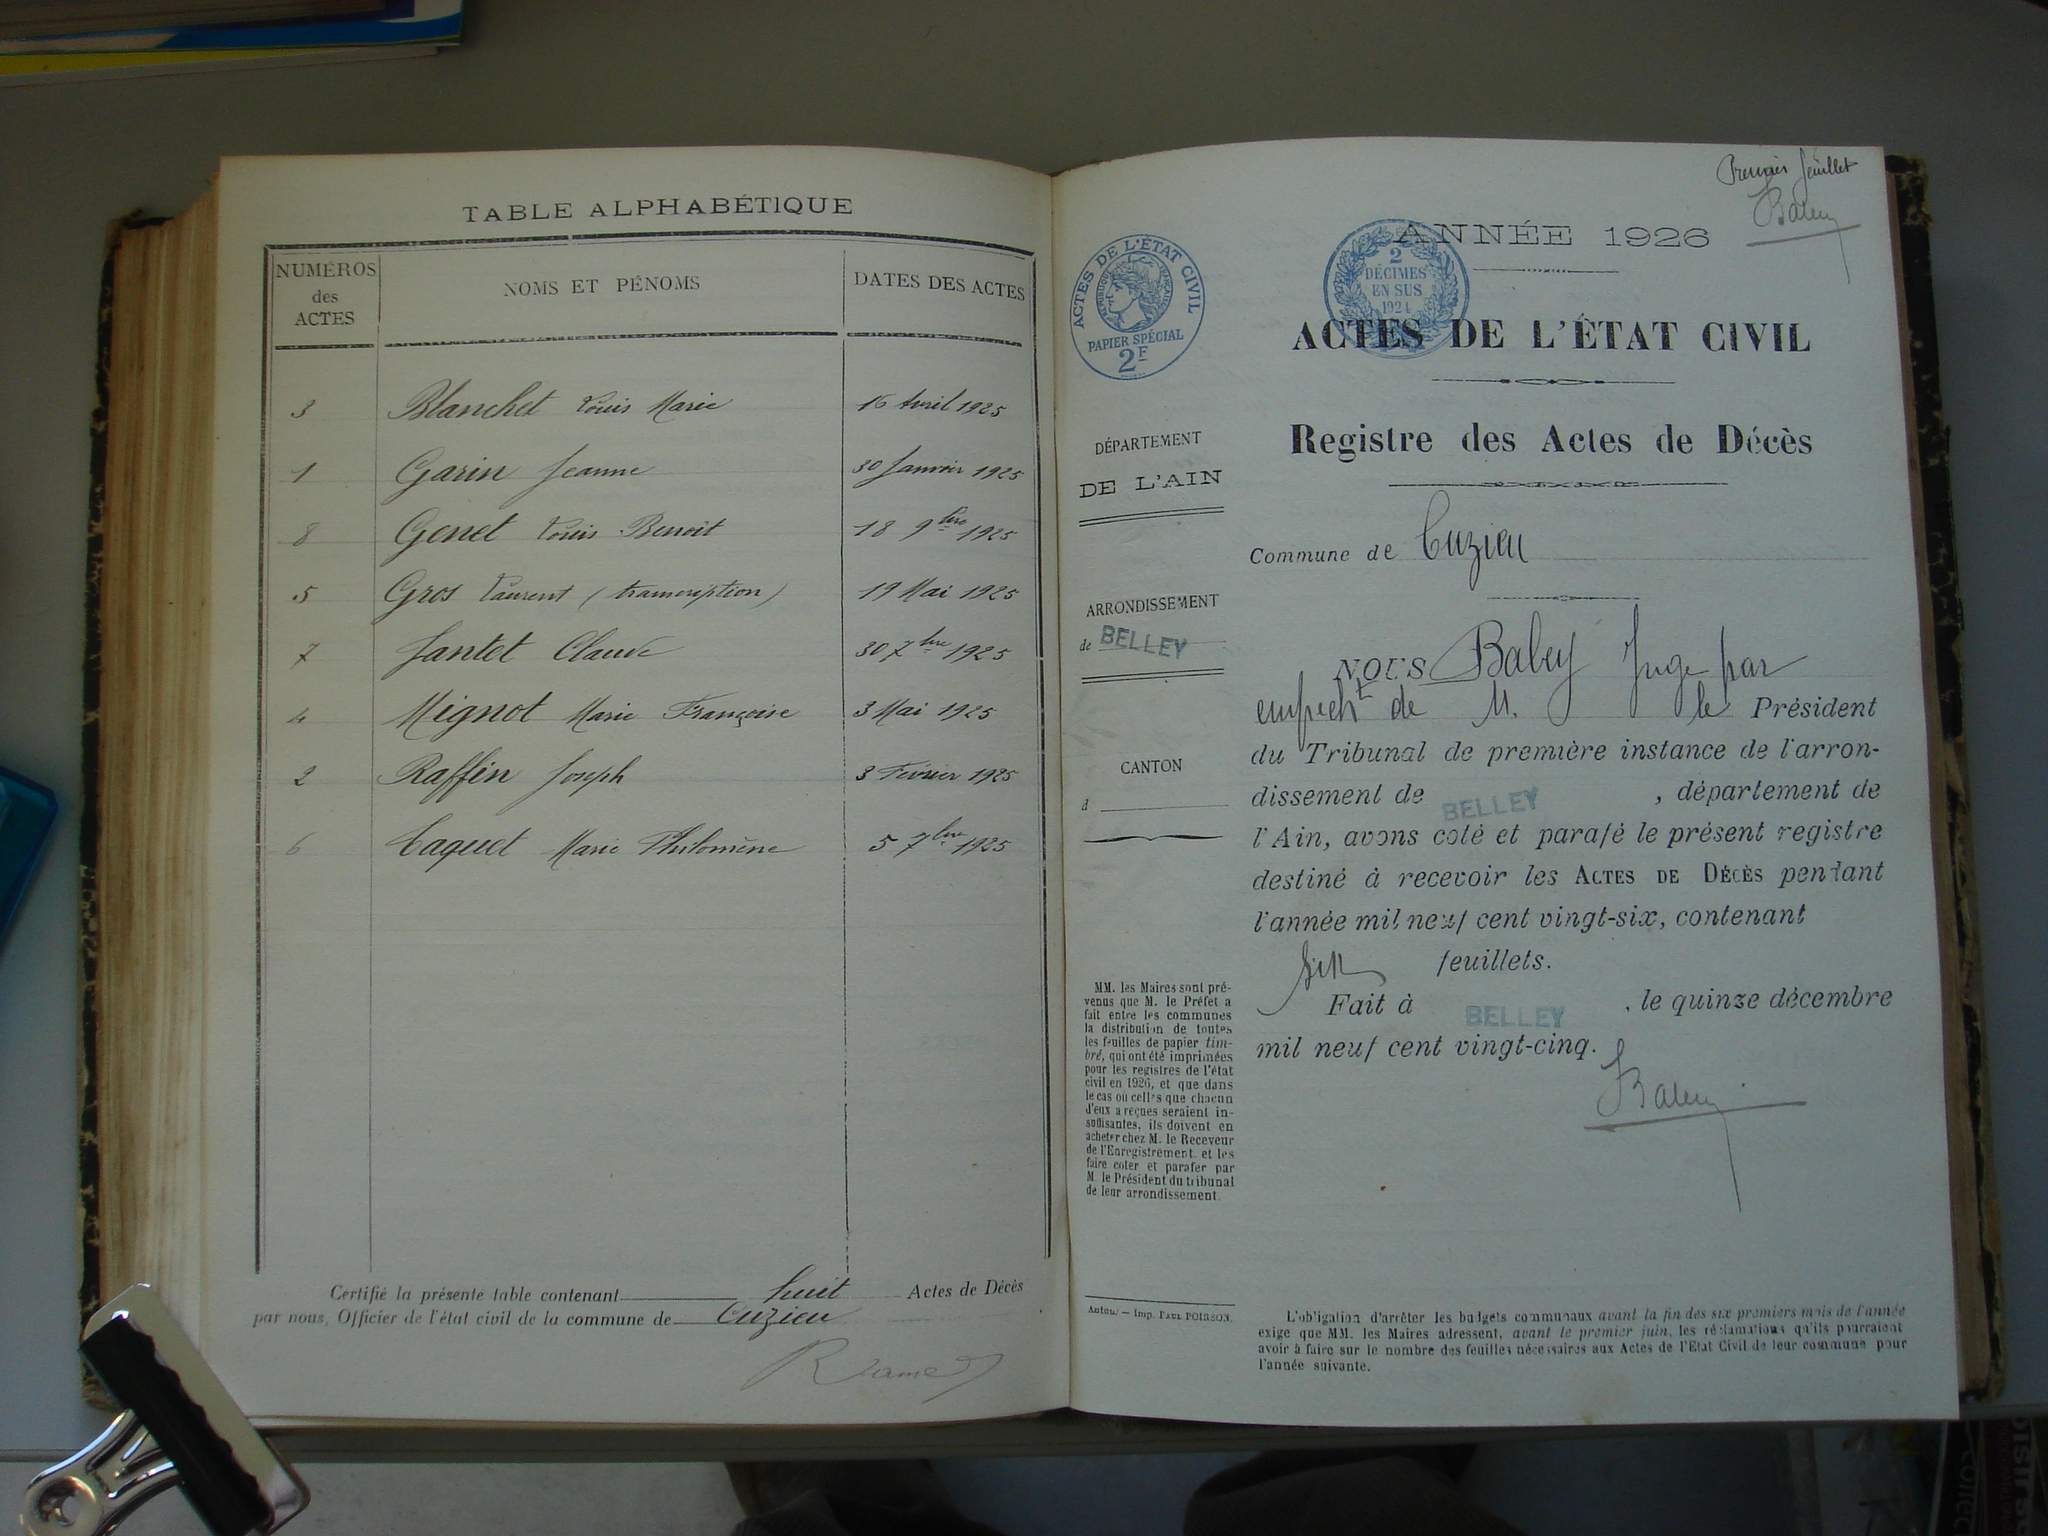 TABLE ALPHABÉTIQUE
NUMÉROS des ACTES
NOMS ET PÉNOMS
DATES DES ACTES
3 Blanchet Louis Marie 16 Avril 1925
1 Garin Jeanne 30 Janvier 1925
8 Genet Louis Benoit 18 9bre 1925
5 Gros Laurent (transcription) 19 Mai 1925
7 Jantet Claude 30 7bre 1925
4 Mignot Marie Françoise 3 Mai 1925
2 Raffin Joseph 3 Février 1925
6 Taquet Marie Philomène 5 7bre 1925
Certifié la présente table contenant huit Actes de Décès
par nous, Officier de l'état civil de la commune de Cuzieu
Premier feuillet
Babey
ANNÉE 1926
ACTES DE L'ÉTAT CIVIL
RÉPUBLIQUE FRANÇAISE
PAPIER SPÉCIAL
2F
2
DÉCIMES
EN SUS
1924
ACTES DE L'ÉTAT CIVIL
Registre des Actes de Décès
DÉPARTEMENT
DE L'AIN
Commune de Cuzieu
ARRONDISSEMENT
de BELLEY
CANTON
d
NOUS Babey Juge par
empecht de M. le Président
du Tribunal de première instance de l'arron-
dissement de BELLEY, département de
l'Ain, avons coté et parafé le présent registre
destiné à recevoir les ACTES DE DÉCÈS pendant
l'année mil neuf cent vingt-six, contenant
six feuillets.
Fait à BELLEY, le quinze décembre
mil neuf cent vingt-cinq.
Babey
MM. les Maires sont pré-
venus que M. le Préfet a
fait entre les communes
la distribution de toutes
les feuilles de papier tim-
bré, qui ont été imprimées
pour les registres de l'état
civil en 1926, et que dans
le cas où celles que chacun
d'eux a reçues seraient in-
suffisantes, ils doivent en
acheter chez M. le Receveur
de l'Enregistrement. et les
faire coter et parafer par
M. le Président du tribunal
de leur arrondissement.
Imp. PAUL POIRSON.
L'obligation d'arrêter les budgets communaux avant la fin des six premiers mois de l'année
exige que MM. les Maires adressent, avant le premier juin, les réclamations qu'ils pourraient
avoir à faire sur le nombre des feuilles nécessaires aux Actes de l'Etat Civil de leur commune pour
l'année suivante.